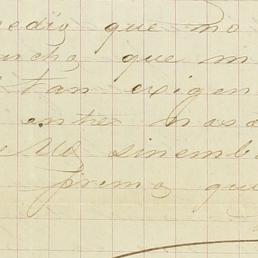 edio que no
ucho que mi
tan exigen
entre noso
sinemb
prima que